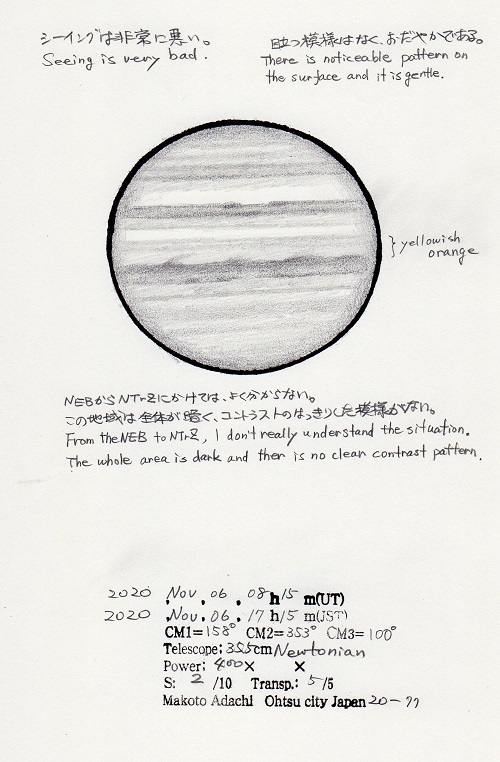 シーイングは非常に悪い。
Seeing is very bad.
目立つ模様はなく、おだやかである。
There is noticeable pattern on
the surface and it is gentle.
yellowish
orange
NEBからNTrZにかけては、よく分からない。
この地域は全体が暗く、コントラストのはっきりした模様がない。
From the NEB to NTrZ, I don't really understand the situation.
The whole area is dark and ther is no clear contrast pattern.
2020 Nov. 06. 08h15m(UT)
2020 Nov. 06. 17h15m(JST)
CM1=158° CM2=353° CM3=100°
Telescope: 355cm Newtonian
Power: 400× ×
S: 2 /10 Transp.: 5/5
Makoto Adachi Ohtsu city Japan 20-77